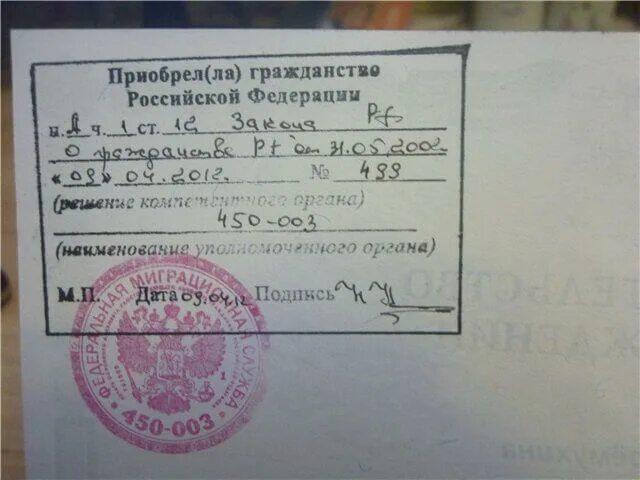 Приобрел(ла) гражданство
Российской Федерации
п. А ч. 1 ст. 12 Закона РФ
О гражданстве РФ от 31.05.2002
«09» 04.2012г. № 499
(решение компетентного органа)
450-003
(наименование уполномоченного органа)
М.П. Дата 09.04.12 Подпись
ФЕДЕРАЛЬНАЯ МИГРАЦИОННАЯ СЛУЖБА
450-003